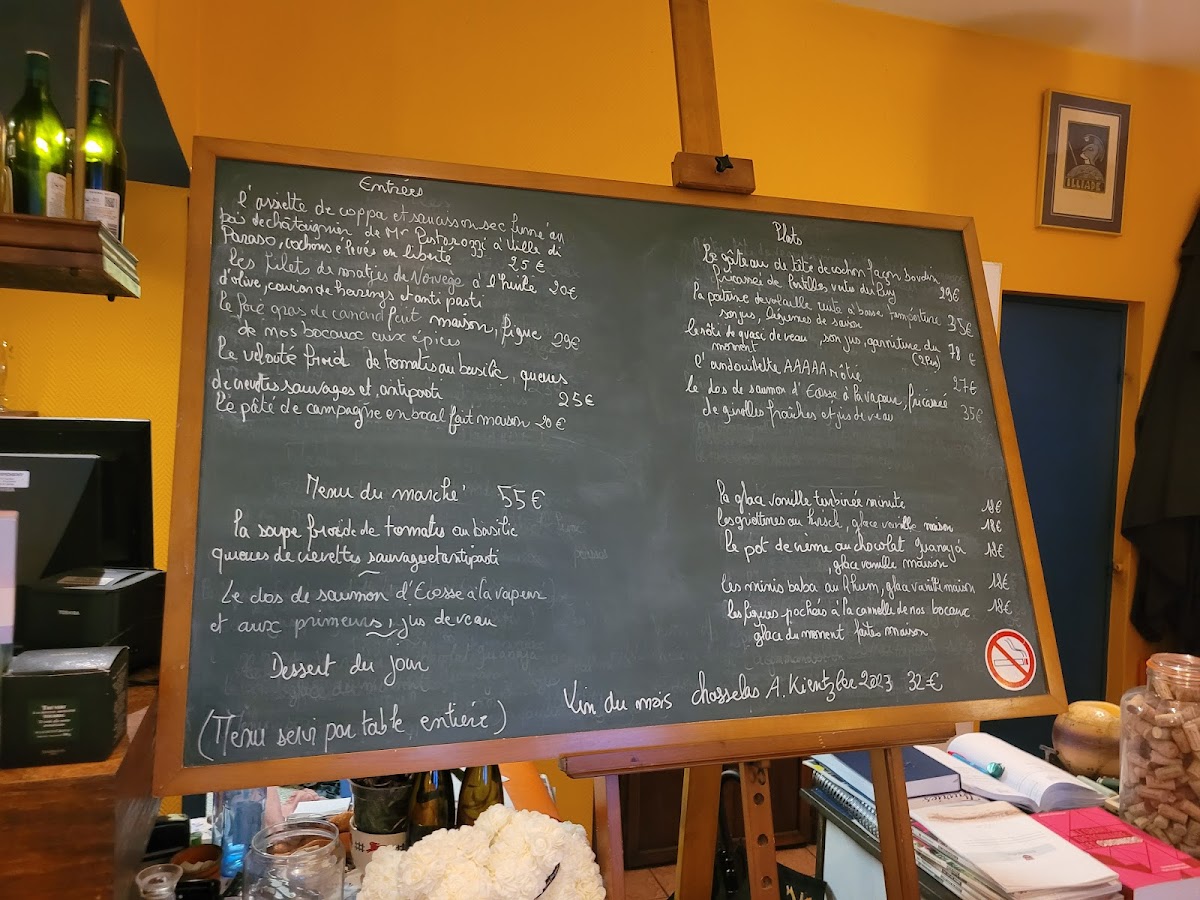 Entrées
l'assiette de coppa et saucisson sec fumé au
bois de châtaignier de Mr Pistorozzi à Ville di
Paraso, cochons élevés en liberté 25 €
les filets de matjes de Norvège à l'huile 20€
d'olive, caviar de harengs et anti pasti
le foie gras de canard fait maison, figue 29€
de nos bocaux aux épices
le velouté froid de tomates au basilic, queues
de crevettes sauvages et, antipasti 25€
le pâté de campagne en bocal fait maison 20€
Menu du marché 55€
la soupe froide de tomates au basilic
queues de crevettes sauvages et antipasti
Le dos de saumon d'Ecosse à la vapeur
et aux primeurs, jus de veau
Dessert du jour
(Menu servi par table entière)
Plats
Le gâteau de tête de cochon façon boudin
fricassée de lentilles vertes du Puy 29€
la poitrine de volaille cuite à basse température
son jus, légumes de saison 35€
le rôti de quasi de veau, son jus, garniture du 78 €
moment (2 Per)
l'andouillette AAAAA rôtie 27€
le dos de saumon d'Ecosse à la vapeur, fricassée
de girolles fraîches et jus de veau 35€
la glace vanille turbinée minute 18€
les griottines au kirsch, glace vanille maison 18€
le pot de crème au chocolat guanaja 18€
, glace vanille maison
les minis baba au Rhum, glace vanille maison 18€
les figues pochées à la cannelle de nos bocaux 18€
glace du moment faites maison
Vin du mois chasselas A. Kientzler 2023 32€
ILLIADE
TOSHIBA